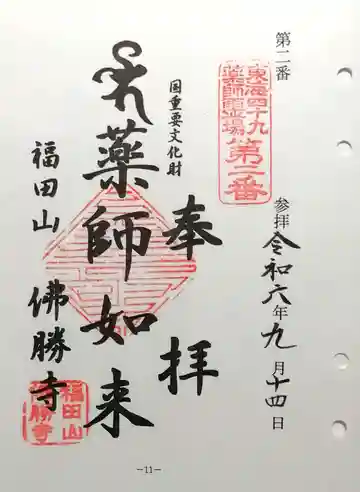 第二番
東海四十九
薬師霊場
第二番
参拝 令和六年九月十四日
奉拝
国重要文化財
薬師如来
福田山 佛勝寺
福田山
佛勝寺
—11—